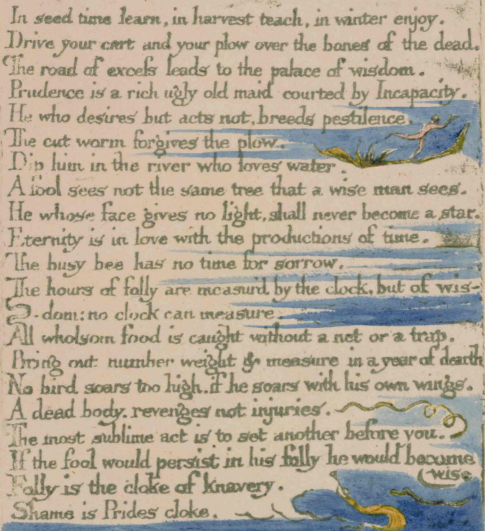 In seed time learn, in harvest teach, in winter enjoy.
Drive your cart and your plow over the bones of the dead.
The road of excess leads to the palace of wisdom.
Prudence is a rich ugly old maid courted by Incapacity.
He who desires but acts not, breeds pestilence.
The cut worm forgives the plow.
Dip him in the river who loves water.
A fool sees not the same tree that a wise man sees.
He whose face gives no light, shall never become a star.
Eternity is in love with the productions of time.
The busy bee has no time for sorrow.
The hours of folly are measur'd by the clock, but of wis-
-dom: no clock can measure.
All wholsom food is caught without a net or a trap.
Bring out number weight & measure in a year of dearth
No bird soars too high. if he soars with his own wings.
A dead body. revenges not injuries.
The most sublime act is to set another before you.
If the fool would persist in his folly he would become
(wise
Folly is the cloke of knavery.
Shame is Prides cloke.